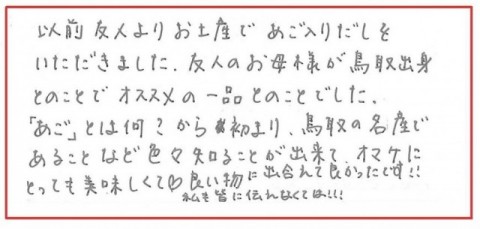 以前友人よりお土産であご入りだしを
いただきました。友人のお母様が鳥取出身
とのことでオススメの一品とのことでした。
「あご」とは何？から初まり、鳥取の名産で
あることなど色々知ることが出来て、オマケに
とっても美味しくて♡良い物に出合れて良かったです!!
私も皆に伝れなくては!!!